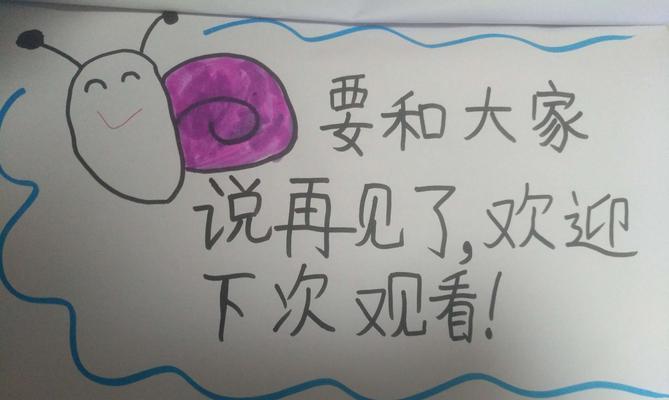 要和大家
说再见了,欢迎
下次观看!